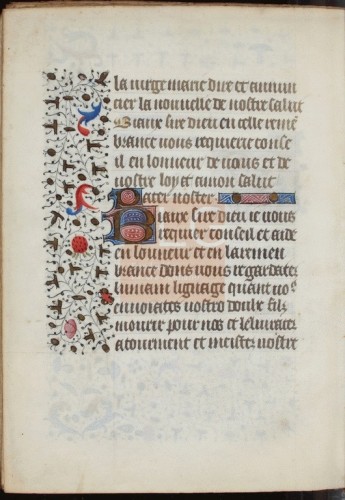 la virge marie dire et annun
cier la nouvelle de nostre salut
Biaux sire dieu en celle reme
brance vous requiere conse
il en lonneur de vous et de
nostre loy et a mon salut
Pater noster
Biaux sire dieu ie vous
requier conseil et aide
en lonneur et en la remem
brance dont vous regardates
lumain lignage quant vo9
envoiates vostro doulx filz
mourir pour nos et le livrates
a tourment et meistes vostre